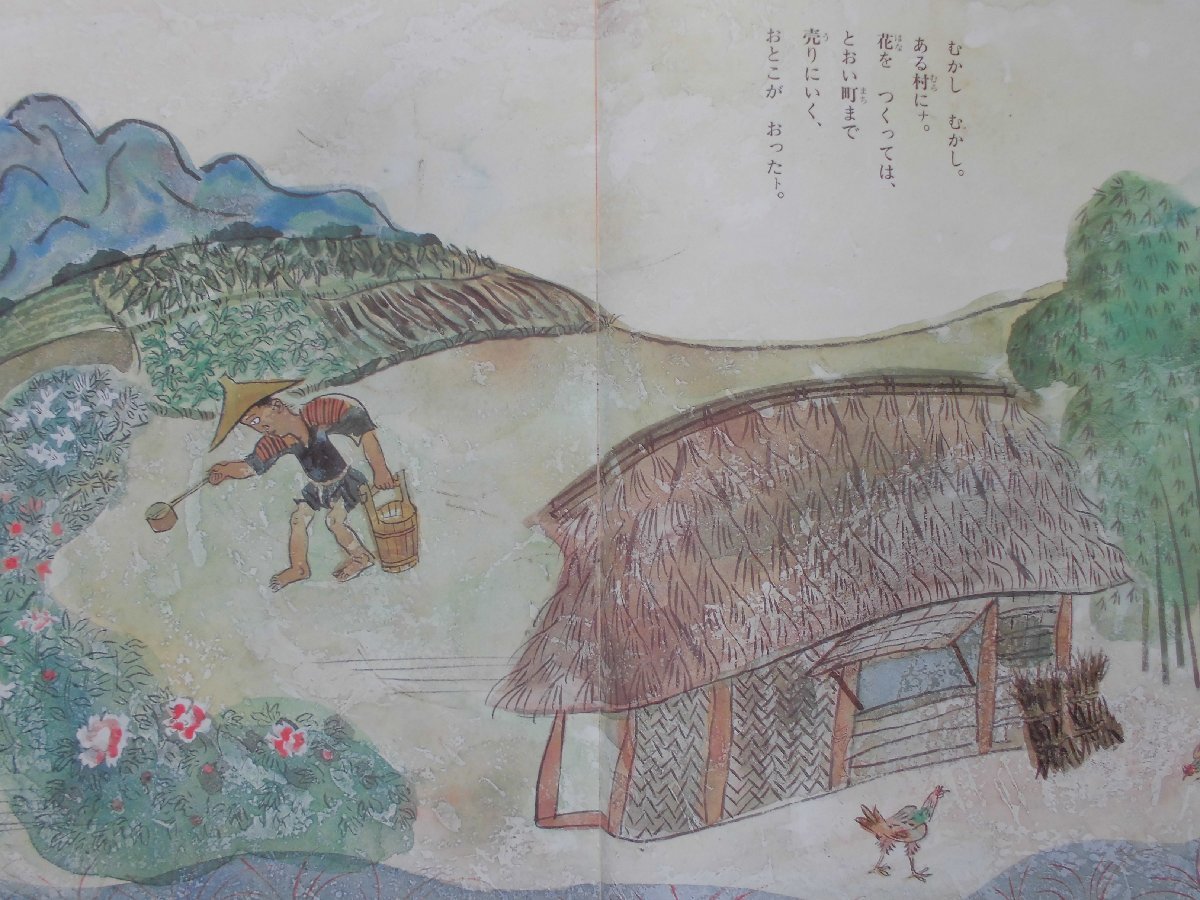 むかし　むかし。
ある村にナ。
花を　つくっては、
とおい町まで
売りにいく、
おとこが　おったト。